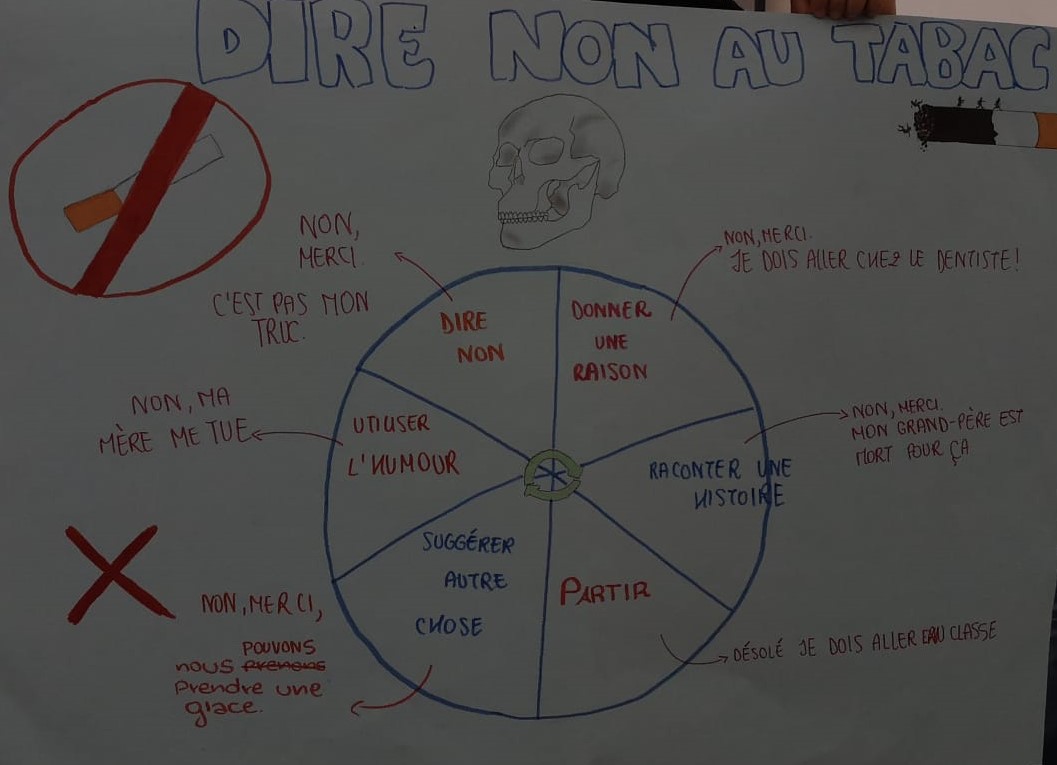 DIRE NON AU TABAC
NON,
MERCI.
C'EST PAS MON
TRUC.
NON, MERCI.
JE DOIS ALLER CHEZ LE DENTISTE!
DIRE
NON
DONNER
UNE
RAISON
NON, MA
MÈRE ME TUE
UTILISER
L'HUMOUR
NON, MERCI.
MON GRAND-PÈRE EST
MORT POUR ÇA
RACONTER UNE
HISTOIRE
SUGGÉRER
AUTRE
CHOSE
PARTIR
NON, MERCI,
POUVONS
nous prenons
Prendre une
glace.
DÉSOLÉ JE DOIS ALLER EN CLASSE